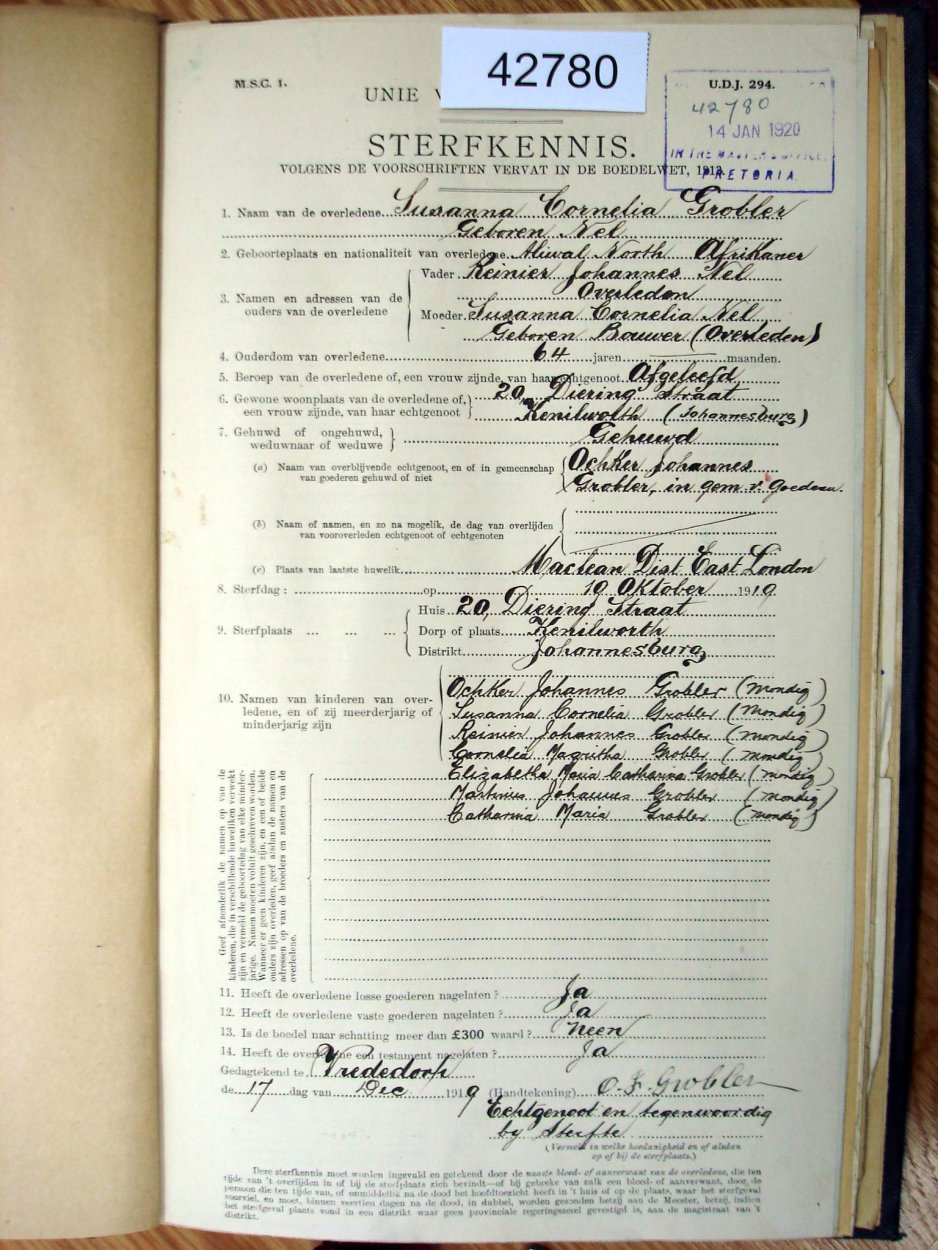 42780
M.S.C. 1.
UNIE V
U.D.J. 294.
42780
14 JAN 1920
IN THE MASTER'S OFFICE,
PRETORIA
STERFKENNIS.
VOLGENS DE VOORSCHRIFTEN VERVAT IN DE BOEDELWET, 1913.
1. Naam van de overledene Susanna Cornelia Grobler
Geboren Nel
2. Geboorteplaats en nationaliteit van overledene Aliwal North Afrikaner
3. Namen en adressen van de ouders van de overledene
Vader Reinier Johannes Nel
Overleden
Moeder Susanna Cornelia Nel
Geboren Bouwer (Overleden)
4. Ouderdom van overledene 64 jaren — maanden.
5. Beroep van de overledene of, een vrouw zijnde, van haar echtgenoot Afgeleefd
6. Gewone woonplaats van de overledene of, 20, Diering Straat
een vrouw zijnde, van haar echtgenoot Kenilworth (Johannesburg)
7. Gehuwd of ongehuwd, weduwnaar of weduwe Gehuwd
(a) Naam van overblijvende echtgenoot, en of in gemeenschap Ochker Johannes
van goederen gehuwd of niet Grobler, in gem. v. Goederen.
(b) Naam of namen, en zo na mogelik, de dag van overlijden
van vooroverleden echtgenoot of echtgenoten
(c) Plaats van laatste huwelik Maclean Dist East London
8. Sterfdag : op 19 Oktober 1919
9. Sterfplaats ... ... ...
Huis 20, Diering Straat
Dorp of plaats Kenilworth
Distrikt Johannesburg
10. Namen van kinderen van over-
ledene, en of zij meerderjarig of
minderjarig zijn
Ochker Johannes Grobler (Mondig)
Susanna Cornelia Grobler (Mondig)
Reinier Johannes Grobler (Mondig)
Cornelia Magritha Grobler (Mondig)
Elizabetha Maria Catharina Grobler (Mondig)
Martinus Johannes Grobler (Mondig)
Catharina Maria Grobler (Mondig)
Geef afzonderlik de namen op van de
kinderen, die in verschillende huweliken verwekt
zijn en vermeld de geboortedag van elke minder-
jarige. Namen moeten voluit geschreven worden.
Wanneer er geen kinderen zijn, en een of beide
ouders zijn overleden, geef alsdan de namen en
adressen op van de broeders en zusters van de
overledene.
11. Heeft de overledene losse goederen nagelaten ? Ja
12. Heeft de overledene vaste goederen nagelaten ? Ja
13. Is de boedel naar schatting meer dan £300 waard ? Neen
14. Heeft de overledene een testament nagelaten ? Ja
Gedagtekend te Vrededorp
de 17 dag van Dec 1919 (Handtekening) O. J. Grobler
Echtgenoot en tegenwoordig
by Sterfte
(Vermeld in welke hoedanigheid en of alsdan
op of bij de sterfplaats.)
Deze sterfkennis moet worden ingevuld en getekend door de naaste bloed- of aanverwant van de overledene, die ten
tijde van 't overlijden in of bij de sterfplaats zich bevindt—of bij gebreke van zulk een bloed- of aanverwant, door de
persoon die ten tijde van, of onmiddellik na de dood het hoofdtoezicht heeft in 't huis of op de plaats, waar het sterfgeval
voorviel, en moet, binnen veertien dagen na de dood, in dubbel, worden gezonden hetzij aan de Meester, hetzij, indien
het sterfgeval plaats vond in een distrikt waar geen provinciale regeringszetel gevestigd is, aan de magistraat van 't
distrikt.